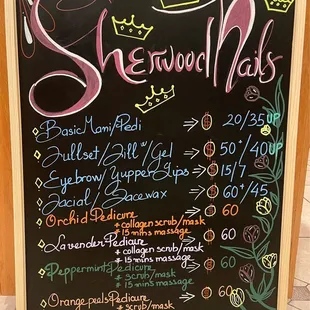 Sherwood Nails
Basic Mani/Pedi → $ 20/35 UP
Full set/Fill w/Gel → $ 50+/40 UP
Eyebrow/Yupper Lips → $ 15/7
Facial/Face wax → $ 60+/45
Orchid Pedicure → $ 60
+ collagen scrub/mask
+ 15 mins massage
Lavender Pedicure → $ 60
+ collagen scrub/mask
+ 15 mins massage
Peppermint Pedicure → $ 60
+ scrub/mask
+ 15 mins massage
Orange peels Pedicure → $ 60
+ scrub/mask